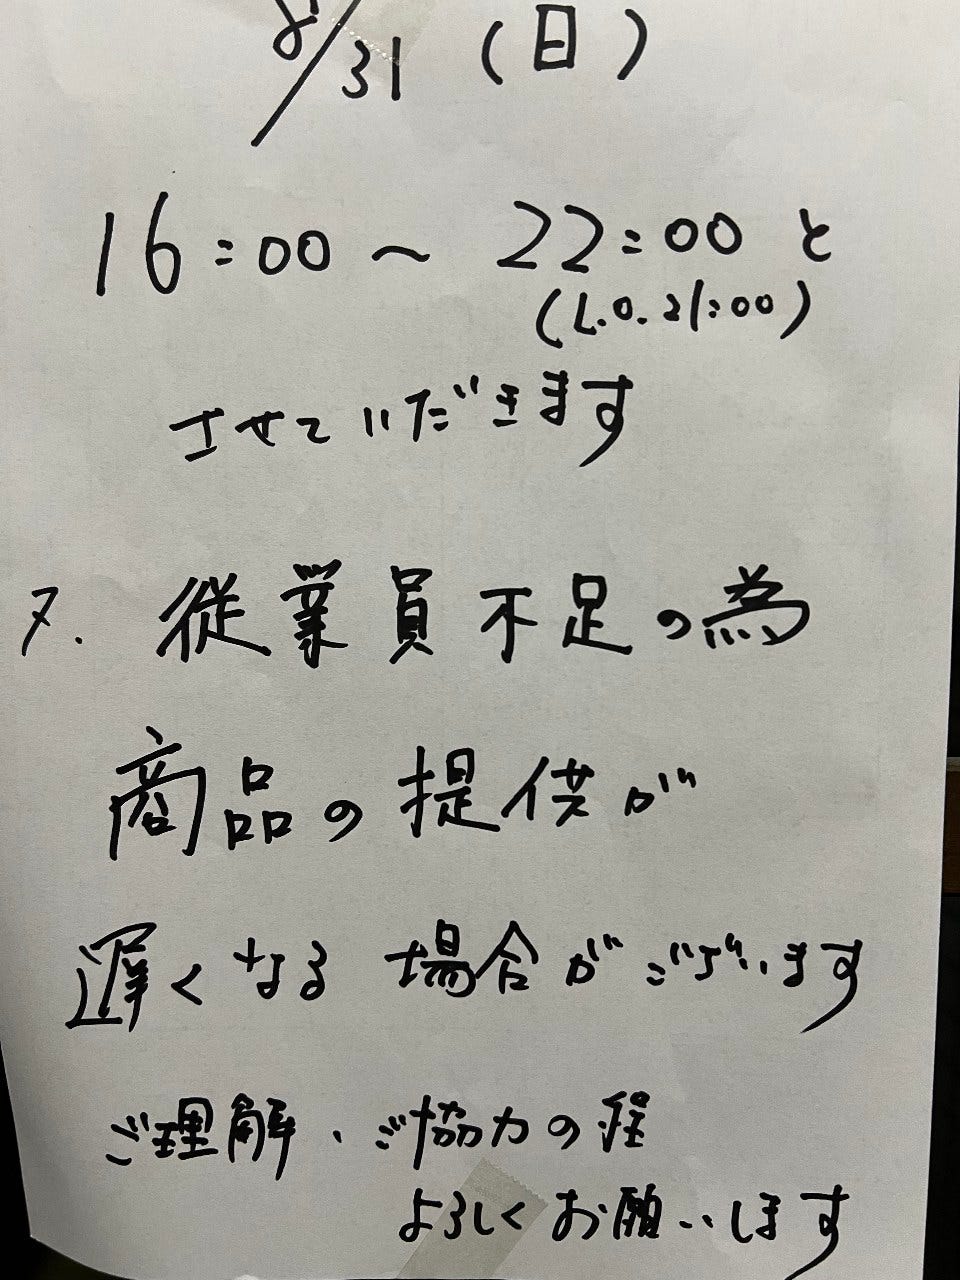 8/31(日)
16:00～22:00と
(L.O.21:00)
させていただきます
又、従業員不足の為
商品の提供が
遅くなる場合がございます
ご理解、ご協力の程
よろしくお願いします